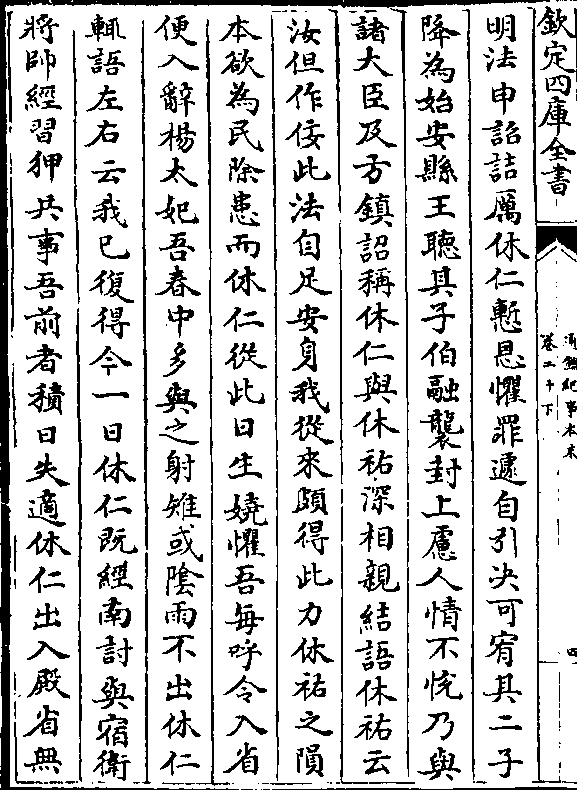 欽定四庫全書
通鑑紀事本末
卷二十下
四
明法申詔詰厲休仁慙恩懼罪遽自引決可宥其二子
降為始安縣王聽其子伯融襲封上慮人情不恱乃與
諸大臣及方鎮詔稱休仁與休祐深相親結語休祐云
汝但作佞此法自足安身我從來頗得此力休祐之隕
本欲為民除患而休仁從此日生嬈懼吾每呼令入省
便入辭楊太妃吾春中多與之射雉或陰雨不出休仁
輒語左右云我已復得今一日休仁既經南討與宿衛
將帥經習狎共事吾前者積日失適休仁出入殿省無